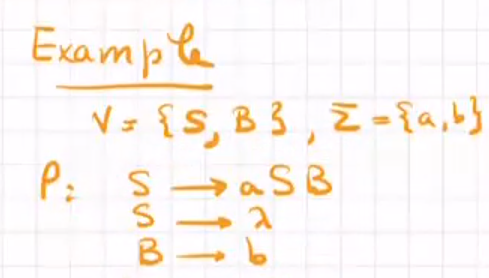 Example
V = {S, B}, Σ = {a, b}
P: S → aSB
S → λ
B → b